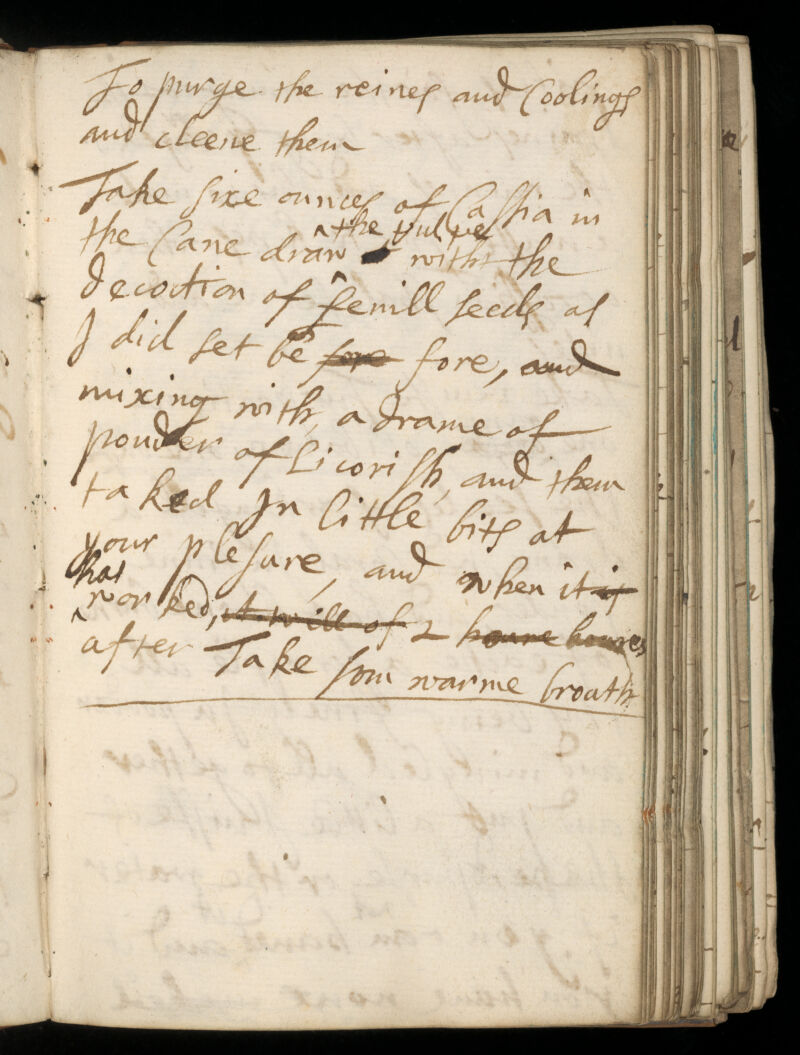 To purge the reines and Coolings
and cleene them
Take sixe ounces of Cassia in
the Cane draw ^the pulpe with the
decoction of ^fenill seeds as
I did set be fore fore, and
mixing with, a drame of
powder of Licorish, and them
taked In little bits at
your plesure, and when it is
^hat worked, it will of 2 houre houres
after Take som warme broath